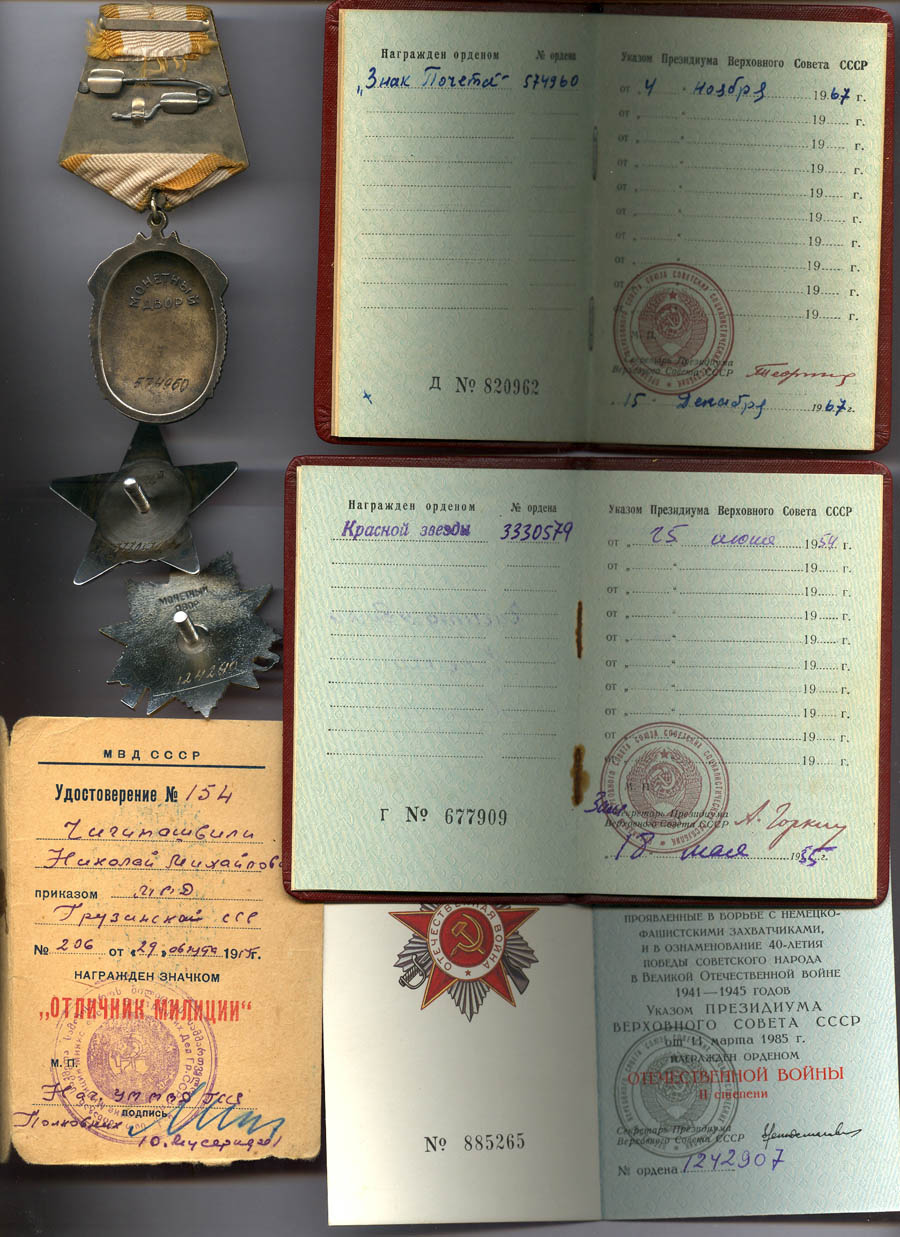 МОНЕТНЫЙ
ДВОР
574960
Награжден орденом № ордена
„Знак Почета" 574960
Д № 820962
Указом Президиума Верховного Совета СССР
от „4" ноября 1967 г.
от „ " 19 г.
от „ " 19 г.
от „ " 19 г.
от „ " 19 г.
от „ " 19 г.
от „ " 19 г.
от „ " 19 г.
от 19 г.
19 г.
М. П.
Секретарь Президиума
Верховного Совета СССР
„15" Декабря 1967 г.
МОНЕТНЫЙ
ДВОР
Награжден орденом № ордена
Красной звезды 3330579
Г № 677909
Указом Президиума Верховного Совета СССР
от „25" июня 1954 г.
от „ " 19 г.
от „ " 19 г.
от „ " 19 г.
от „ " 19 г.
от „ " 19 г.
от „ " 19 г.
от „ " 19 г.
от 19 г.
19 г.
М. П.
Зам. Секретарь Президиума
Верховного Совета СССР А. Горкин
„18" мая 1955 г.
МВД СССР
Удостоверение № 154
Чигинашвили
Николай Михайлович
приказом МВД
Грузинской ССР
№ 206 от „29" августа 1955 г.
НАГРАЖДЕН ЗНАЧКОМ
„ОТЛИЧНИК МИЛИЦИИ"
М. П.
Нач.
Полковник подпись
ОТЕЧЕСТВЕННАЯ ВОЙНА
№ 885265
ПРОЯВЛЕННЫЕ В БОРЬБЕ С НЕМЕЦКО-
ФАШИСТСКИМИ ЗАХВАТЧИКАМИ,
И В ОЗНАМЕНОВАНИЕ 40-ЛЕТИЯ
ПОБЕДЫ СОВЕТСКОГО НАРОДА
В ВЕЛИКОЙ ОТЕЧЕСТВЕННОЙ ВОЙНЕ
1941—1945 ГОДОВ
Указом ПРЕЗИДИУМА
ВЕРХОВНОГО СОВЕТА СССР
от 11 марта 1985 г.
НАГРАЖДЕН ОРДЕНОМ
ОТЕЧЕСТВЕННОЙ ВОЙНЫ
II степени
Секретарь Президиума
Верховного Совета СССР
№ ордена 1242907